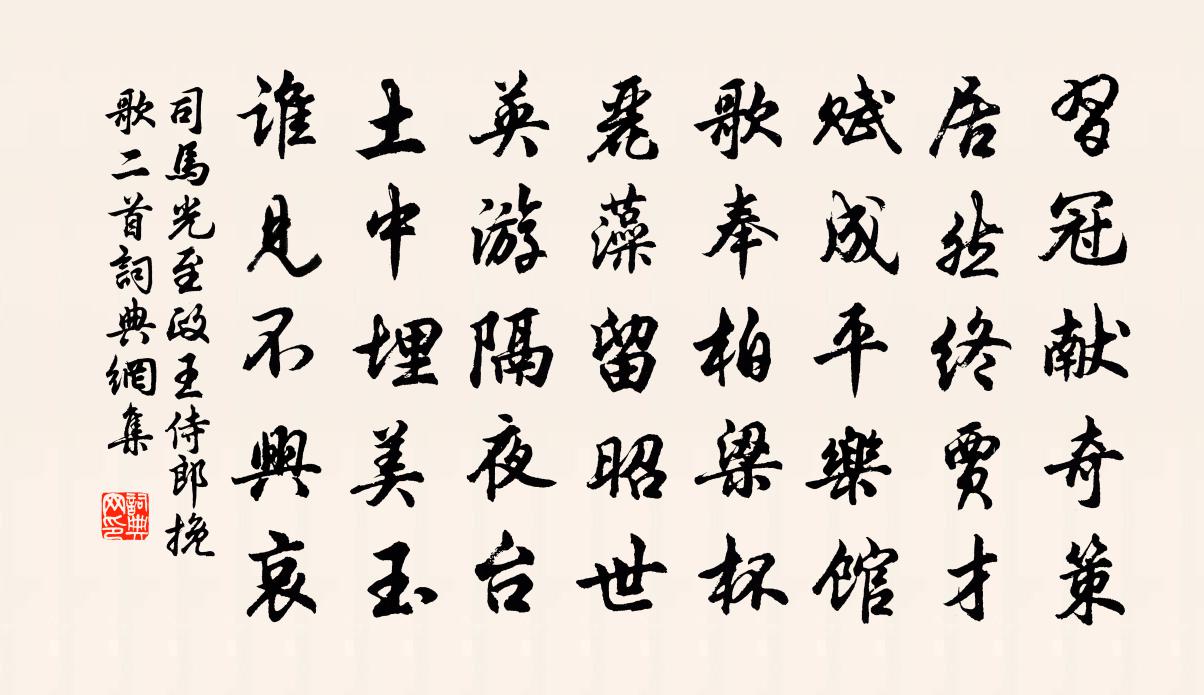 習冠献奇策
居然终贾才
赋成平樂馆
歌奉柏梁杯
麗藻留昭世
英游隔夜台
土中埋美玉
谁見不興哀
司馬光至政王侍郎挽
歌二首詞典網集
詞典网印